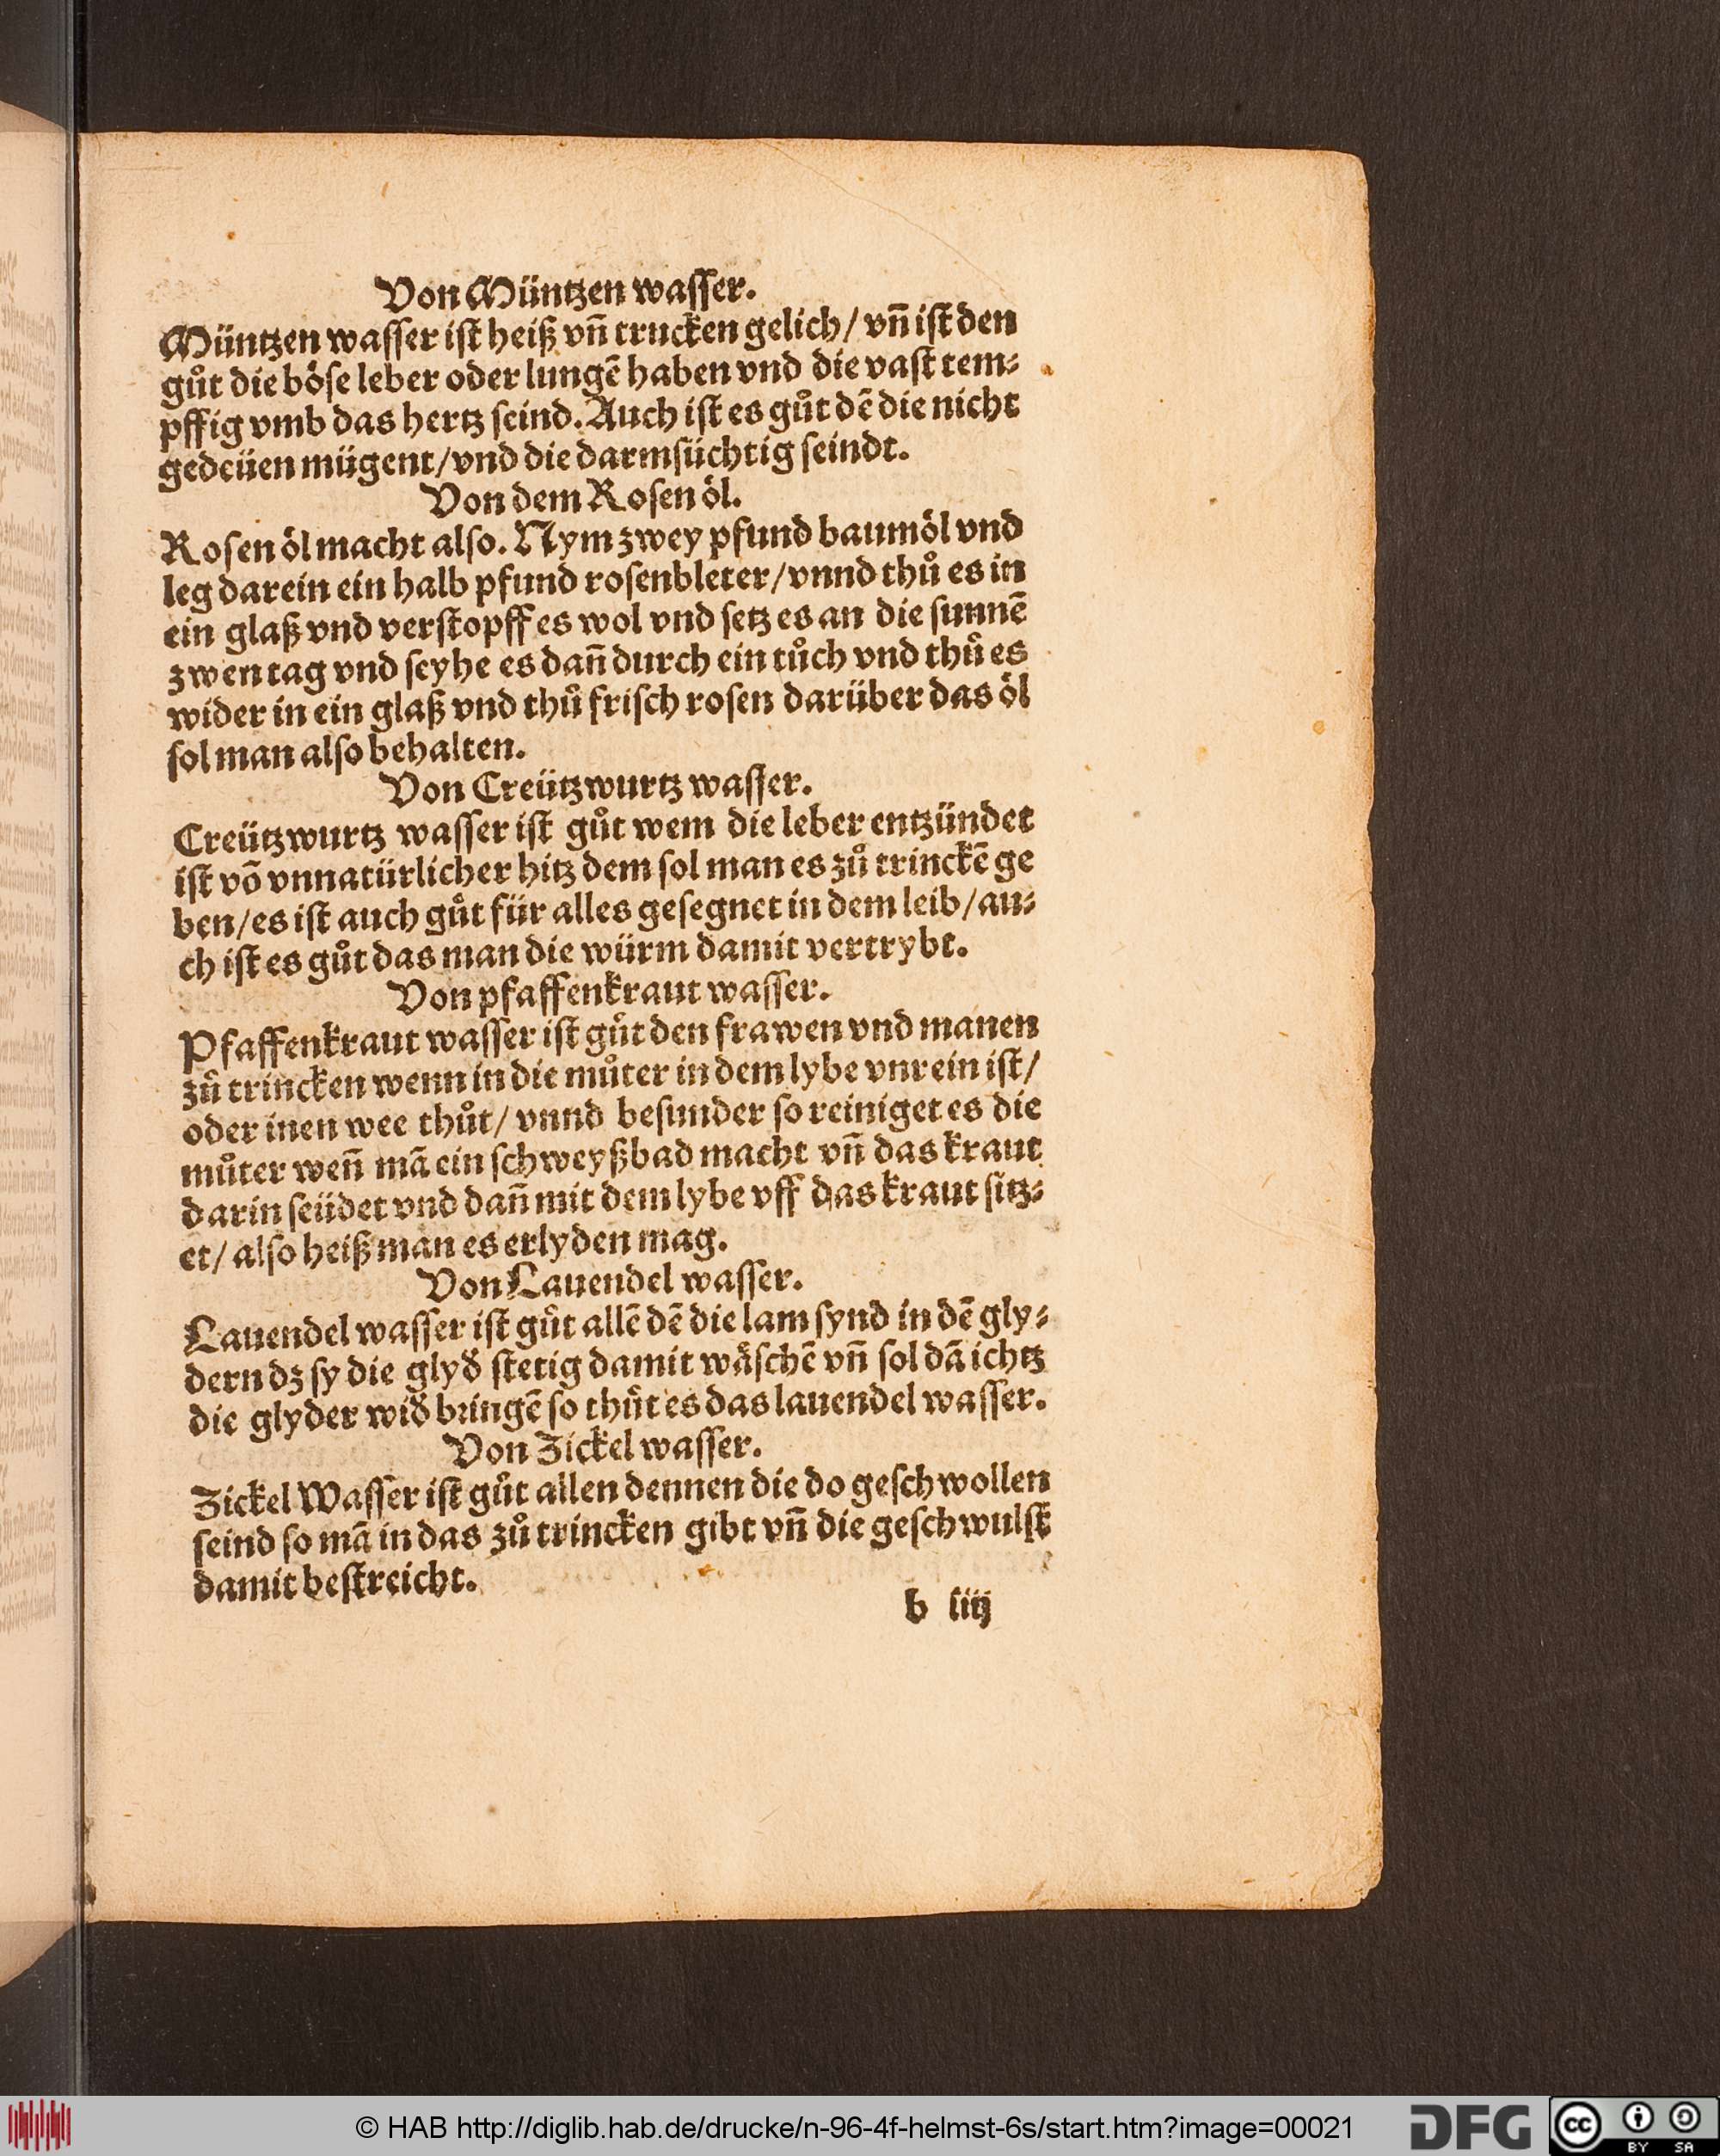 Von Müntzen waſſer.
Müntzen waſſer iſt heiß vñ trucken gelich/ vñ iſt den
gůt die böſe leber oder lungẽ haben vnd die vaſt tem⸗
pffig vmb das hertz ſeind. Auch iſt es gůt dẽ die nicht
gedeüen mügent/vnd die darmſüchtig ſeindt.
Von dem Roſen öl.
Roſen öl macht alſo. Nym zwey pfund baumöl vnd
leg darein ein halb pfund roſenbleter/vnnd thů es in
ein glaß vnd verſtopff es wol vnd ſetz es an die ſunnẽ
zwen tag vnd ſeyhe es dañ durch ein tůch vnd thů es
wider in ein glaß vnd thů friſch roſen darüber das öl
ſol man alſo behalten.
Von Creützwurtz waſſer.
Creützwurtz waſſer iſt gůt wem die leber entzündet
iſt võ vnnatürlicher hitz dem ſol man es zů trinckẽ ge
ben/es iſt auch gůt für alles geſegnet in dem leib/au⸗
ch iſt es gůt das man die würm damit vertrybt.
Von pfaffenkraut waſſer.
Pfaffenkraut waſſer iſt gůt den frawen vnd manen
zů trincken wenn in die můter in dem lybe vnrein iſt/
oder inen wee thůt/ vnnd beſunder ſo reiniget es die
můter weñ mã ein ſchweyßbad macht vñ das kraut
darin ſeüdet vnd dañ mit dem lybe vff das kraut ſitz⸗
et/ alſo heiß man es erlyden mag.
Von Lauendel waſſer.
Lauendel waſſer iſt gůt allẽ dẽ die lam ſynd in dẽ gly⸗
dern dz ſy die glyd̕ ſtetig damit wäſchẽ vñ ſol dã ichtz
die glyder wid̕ bringẽ ſo thůt es das lauendel waſſer.
Von Zickel waſſer.
Zickel Waſſer iſt gůt allen dennen die do geſchwollen
ſeind ſo mã in das zů trincken gibt vñ die geſchwulſt
damit beſtreicht.
b iiij
© HAB http://diglib.hab.de/drucke/n-96-4f-helmst-6s/start.htm?image=00021
DFG
cc BY SA